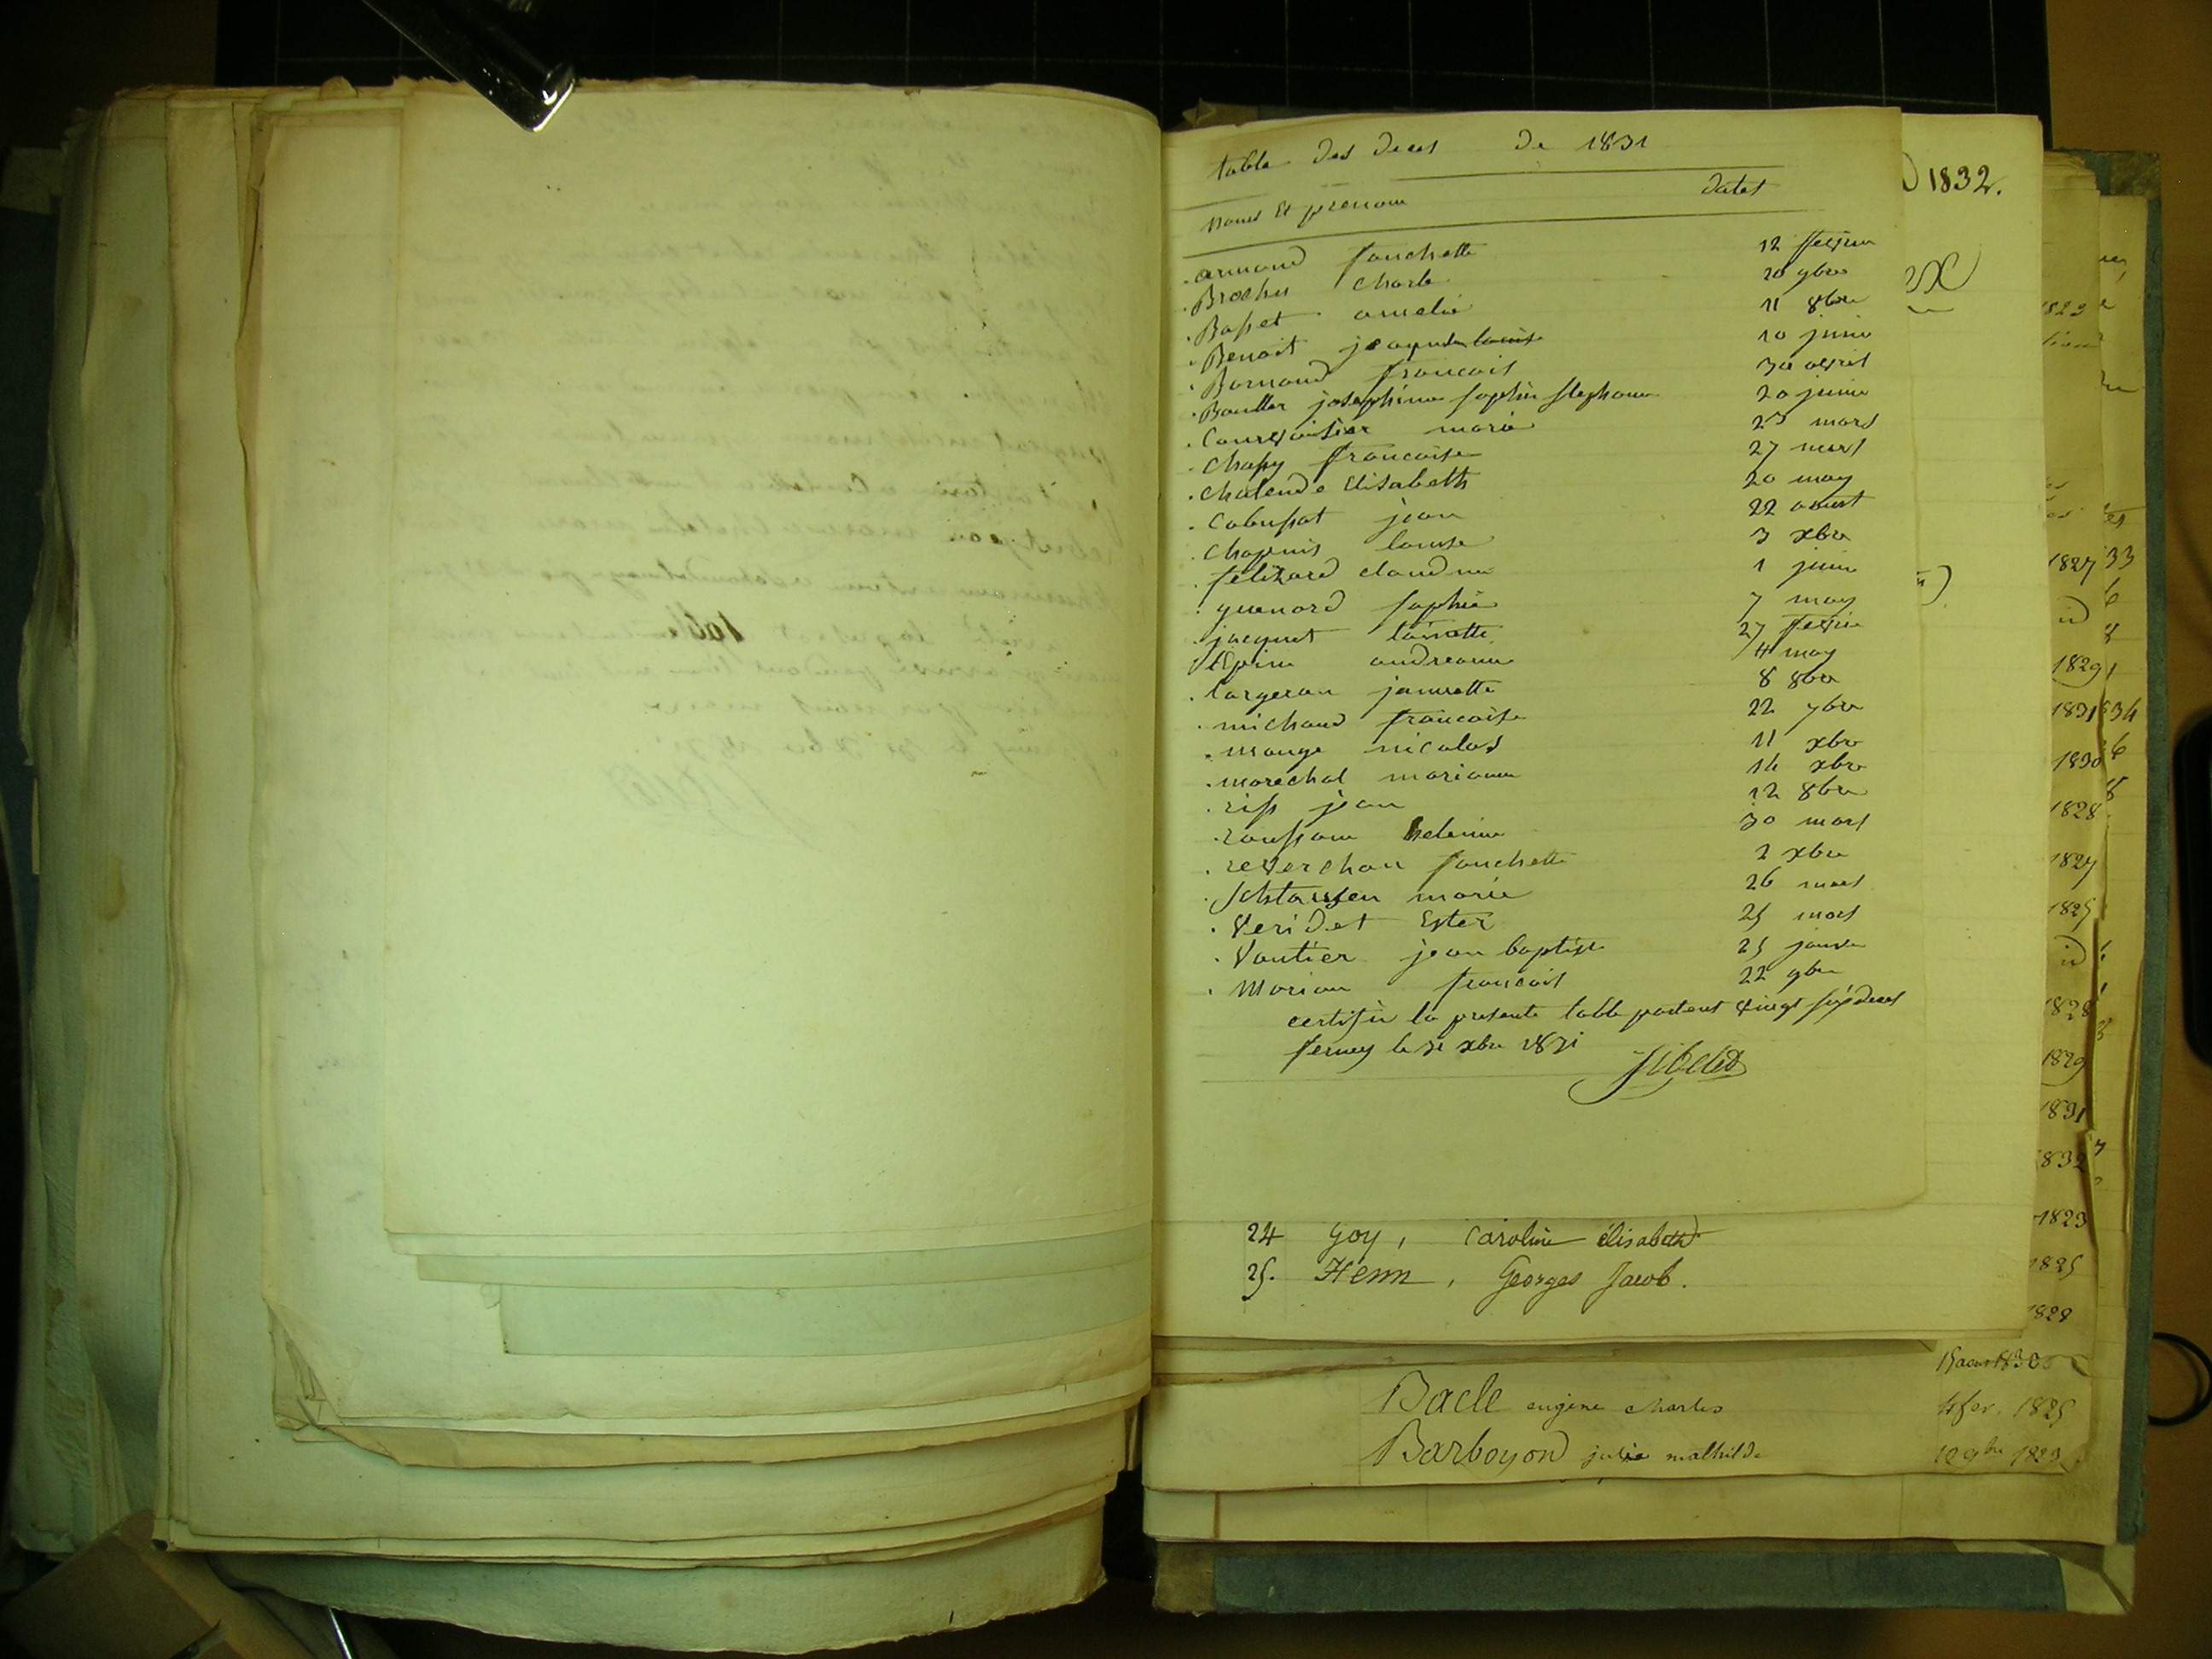 table des deces de 1831
noms et prenom dates
armand fanchette 12 fevrier
Brochu Charle 20 9bre
Basset amelie 11 8bre
Benoit jaques louis 10 juin
Bornand francois 30 avril
Boutter josephine sophie stephanie 20 juin
Courvoisier marie 23 mars
Chapy francoise 27 mars
chalende Elisabeth 20 may
Cabussat jean 22 aoust
Chapuis louise 3 xbre
felizard claudine 1 juin
guenard sophie 7 may
jacquet 27 fevrier
andreanne 4 may
largeron jannette 8 8bre
michaud francoise 22 7bre
monge nicolas 11 xbre
marechal mariann 14 xbre
riss jean 12 8bre
helenne 30 mars
reverchon fanchette 2 xbre
marie 26 mars
Veridet Ester 25 mars
Vautier jean baptiste 25 janvier
Morian francois 22 9bre
certifie la presente table portant vingt sept deces
ferney le 31 xbre 1831
1832.
24 Goy, Caroline élisabeth
25. Henn, Georges Jacob.
15 aout 1830
Bacle eugène charles 4 fev. 1825
Barboyon julie mathilde 12 9bre 1829
1823
1827 33
id
1829
1831 34
1830
1828
1827
1825
id
1828
1829
1831
1832
1823
1825
1828